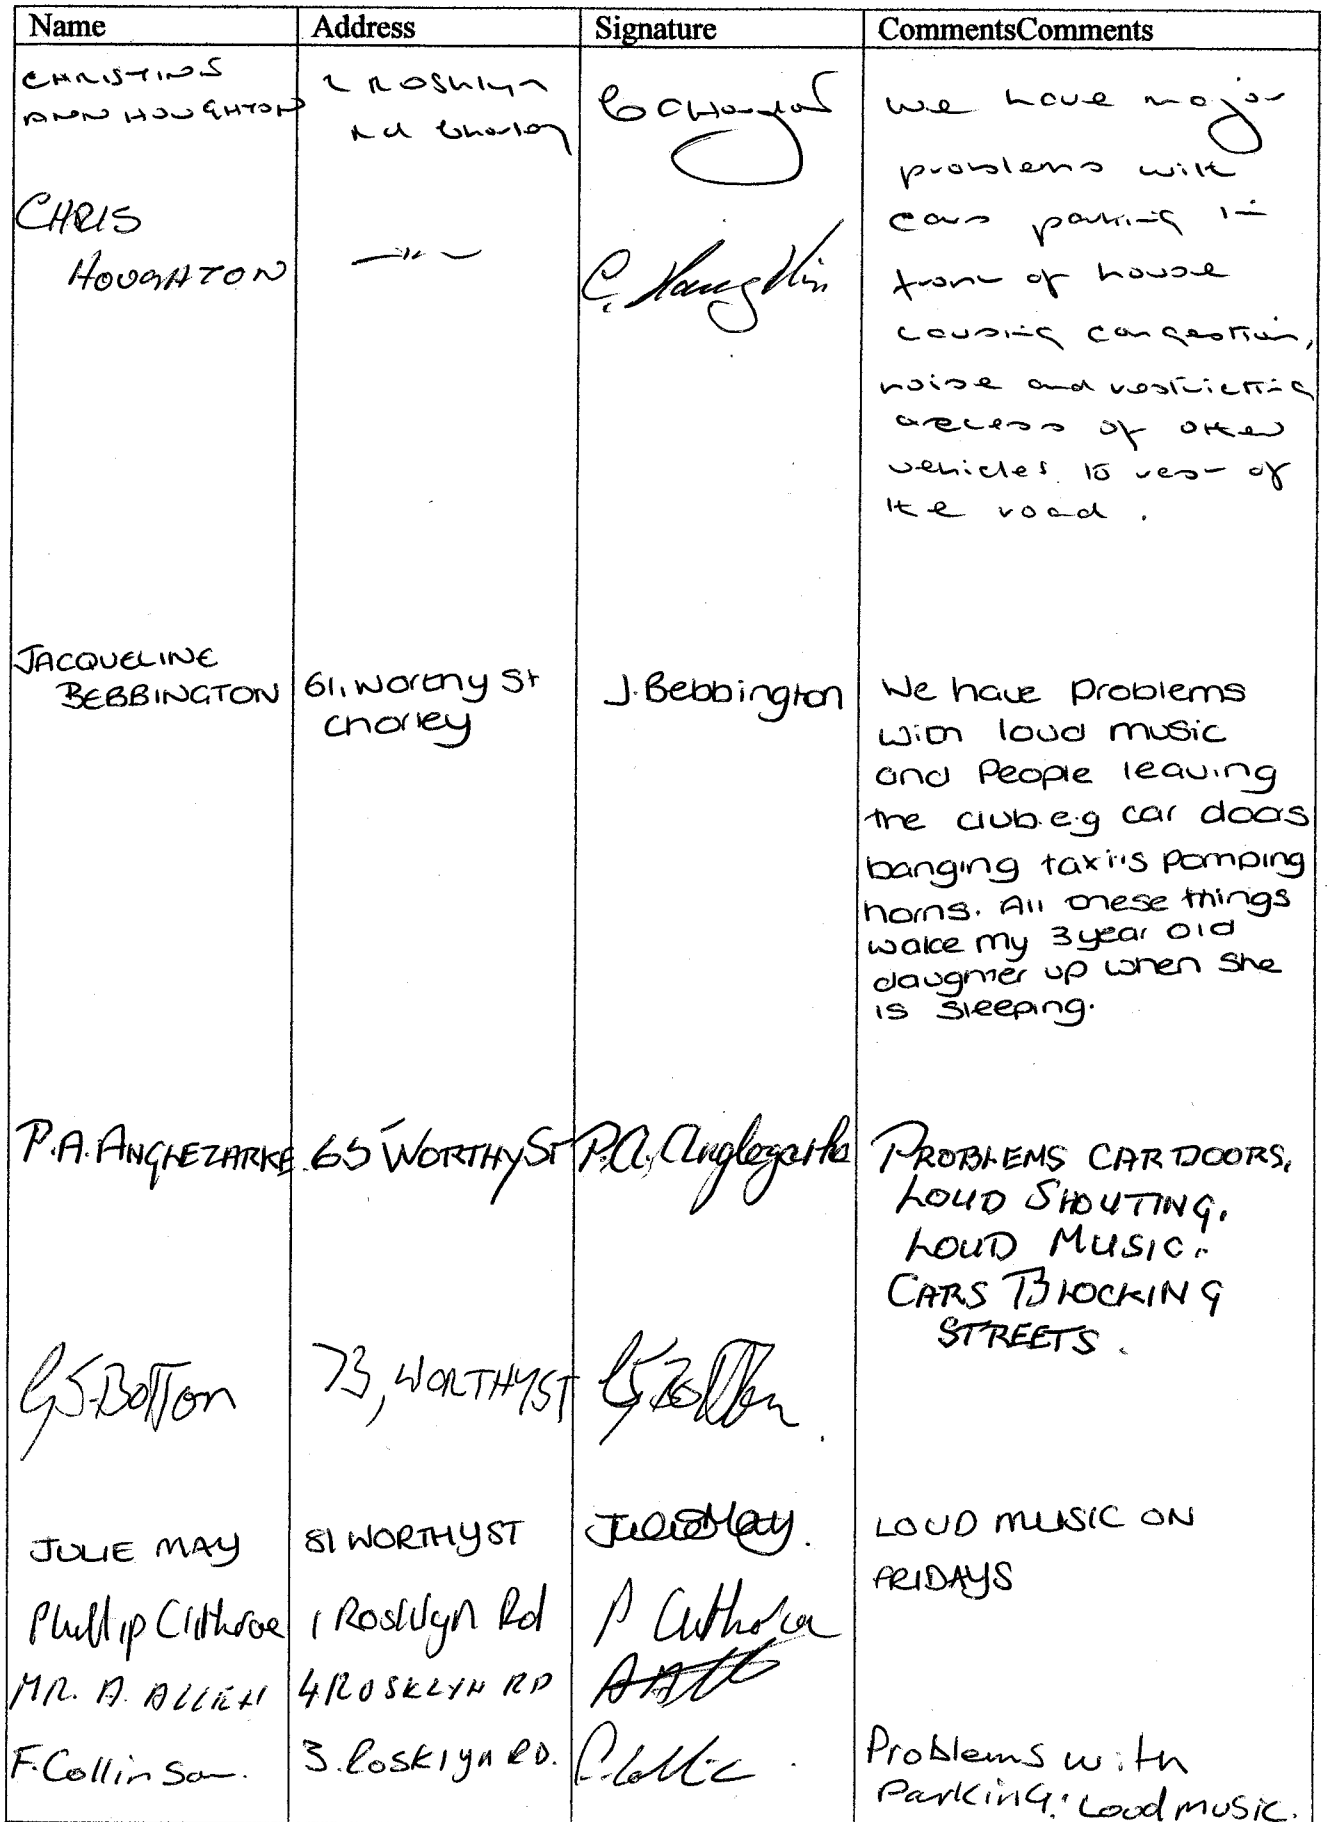 Name Address Signature CommentsComments
CHRISTINE 2 Rosklyn
ANN HOUGHTON Rd Chorley C A Houghton we have major
problems with
CHRIS cars parking in
HOUGHTON —"— C. Houghton front of house
causing congestion,
noise and restricting
access of other
vehicles to rest of
the road.
JACQUELINE
BEBBINGTON 61, Worthy St J. Bebbington We have problems
Chorley with loud music
and People leaving
the club e.g car doors
banging taxi's pomping
horns. All these things
wake my 3 year old
daughter up when she
is sleeping.
P.A. ANGLEZARKE. 65 WORTHY ST P.A. Anglezarke PROBLEMS CAR DOORS.
LOUD SHOUTING.
LOUD MUSIC.
CARS BLOCKING
STREETS.
G S Botton 73, WORTHY ST G S Botton
JULIE MAY 81 WORTHY ST Julie May. LOUD MUSIC ON
FRIDAYS
Phillip Clitheroe 1 Rosklyn Rd P Clitheroe
MR. A. ALLEN 4 ROSKLYN RD
F. Collinson. 3. Rosklyn RD. Problems with
Parking. Loud music.